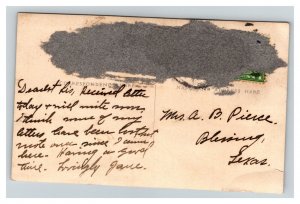 Dearest Sis, Received letter
today & will write more
I think some of my
letters have been lost but
wrote one since I came
here. Having a good
time. Lovingly Jane.
Mrs. A. B. Pierce.
Blessing,
Texas.